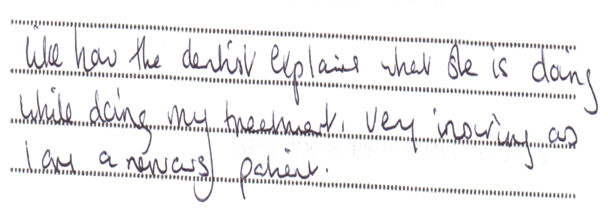 like how the dentist explains what she is doing
while doing my treatment. Very as
I am a nervous patient.